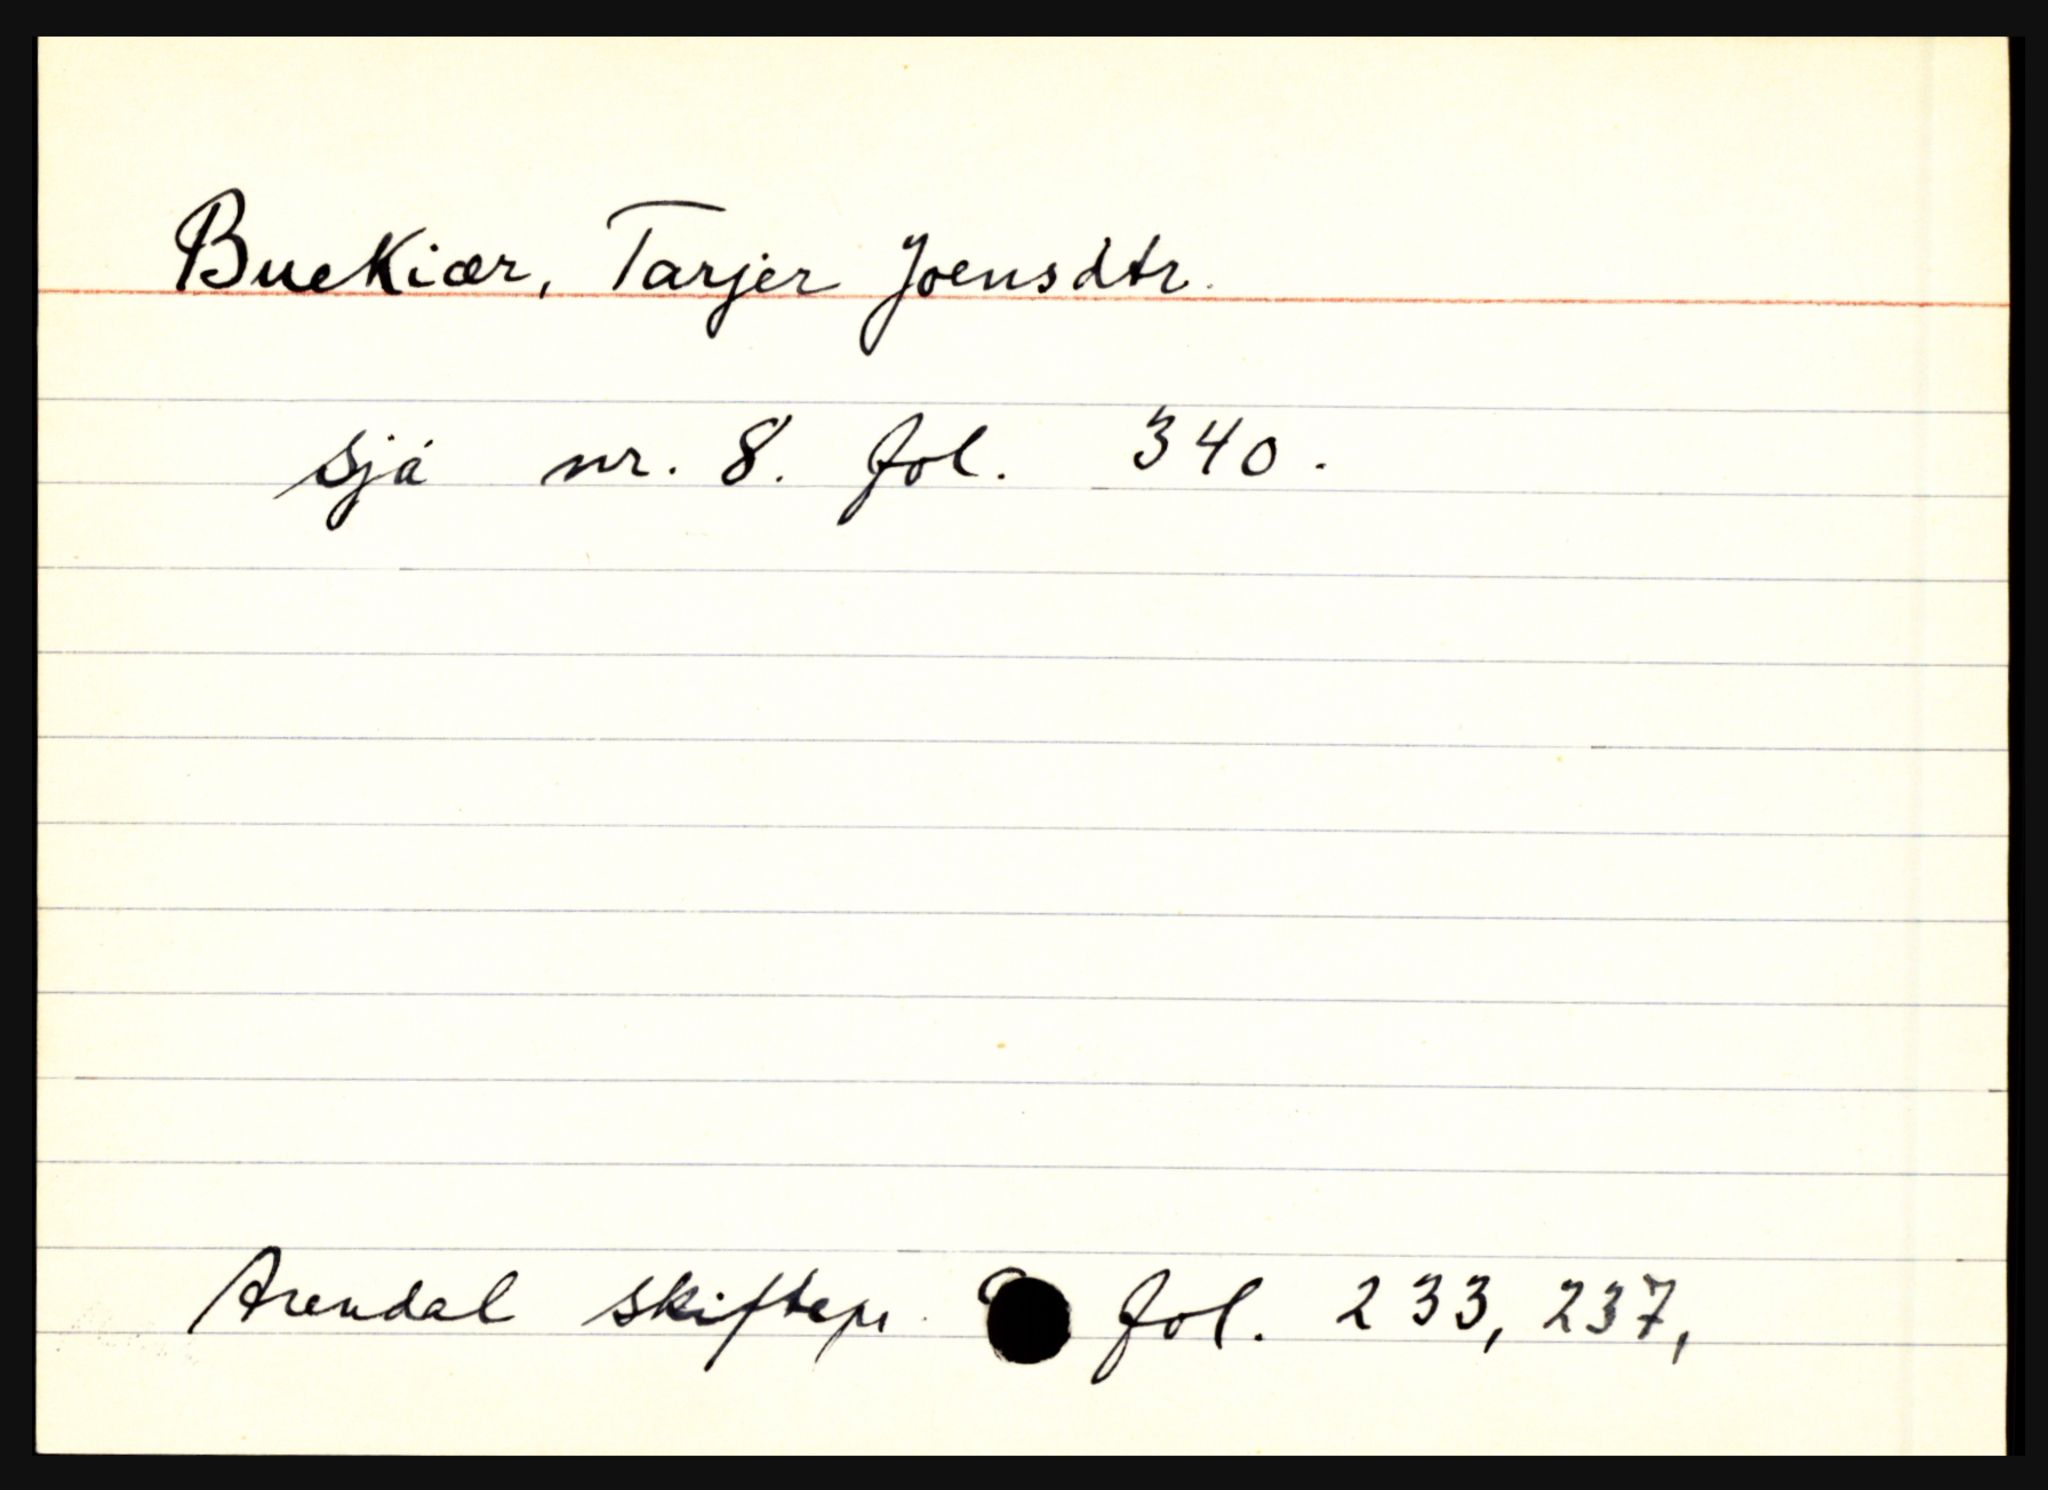 Buekiær, Tarjer Joensdtr.
sjå nr. 8. fol. 340.
Arendal skiftepr. fol. 233, 237,